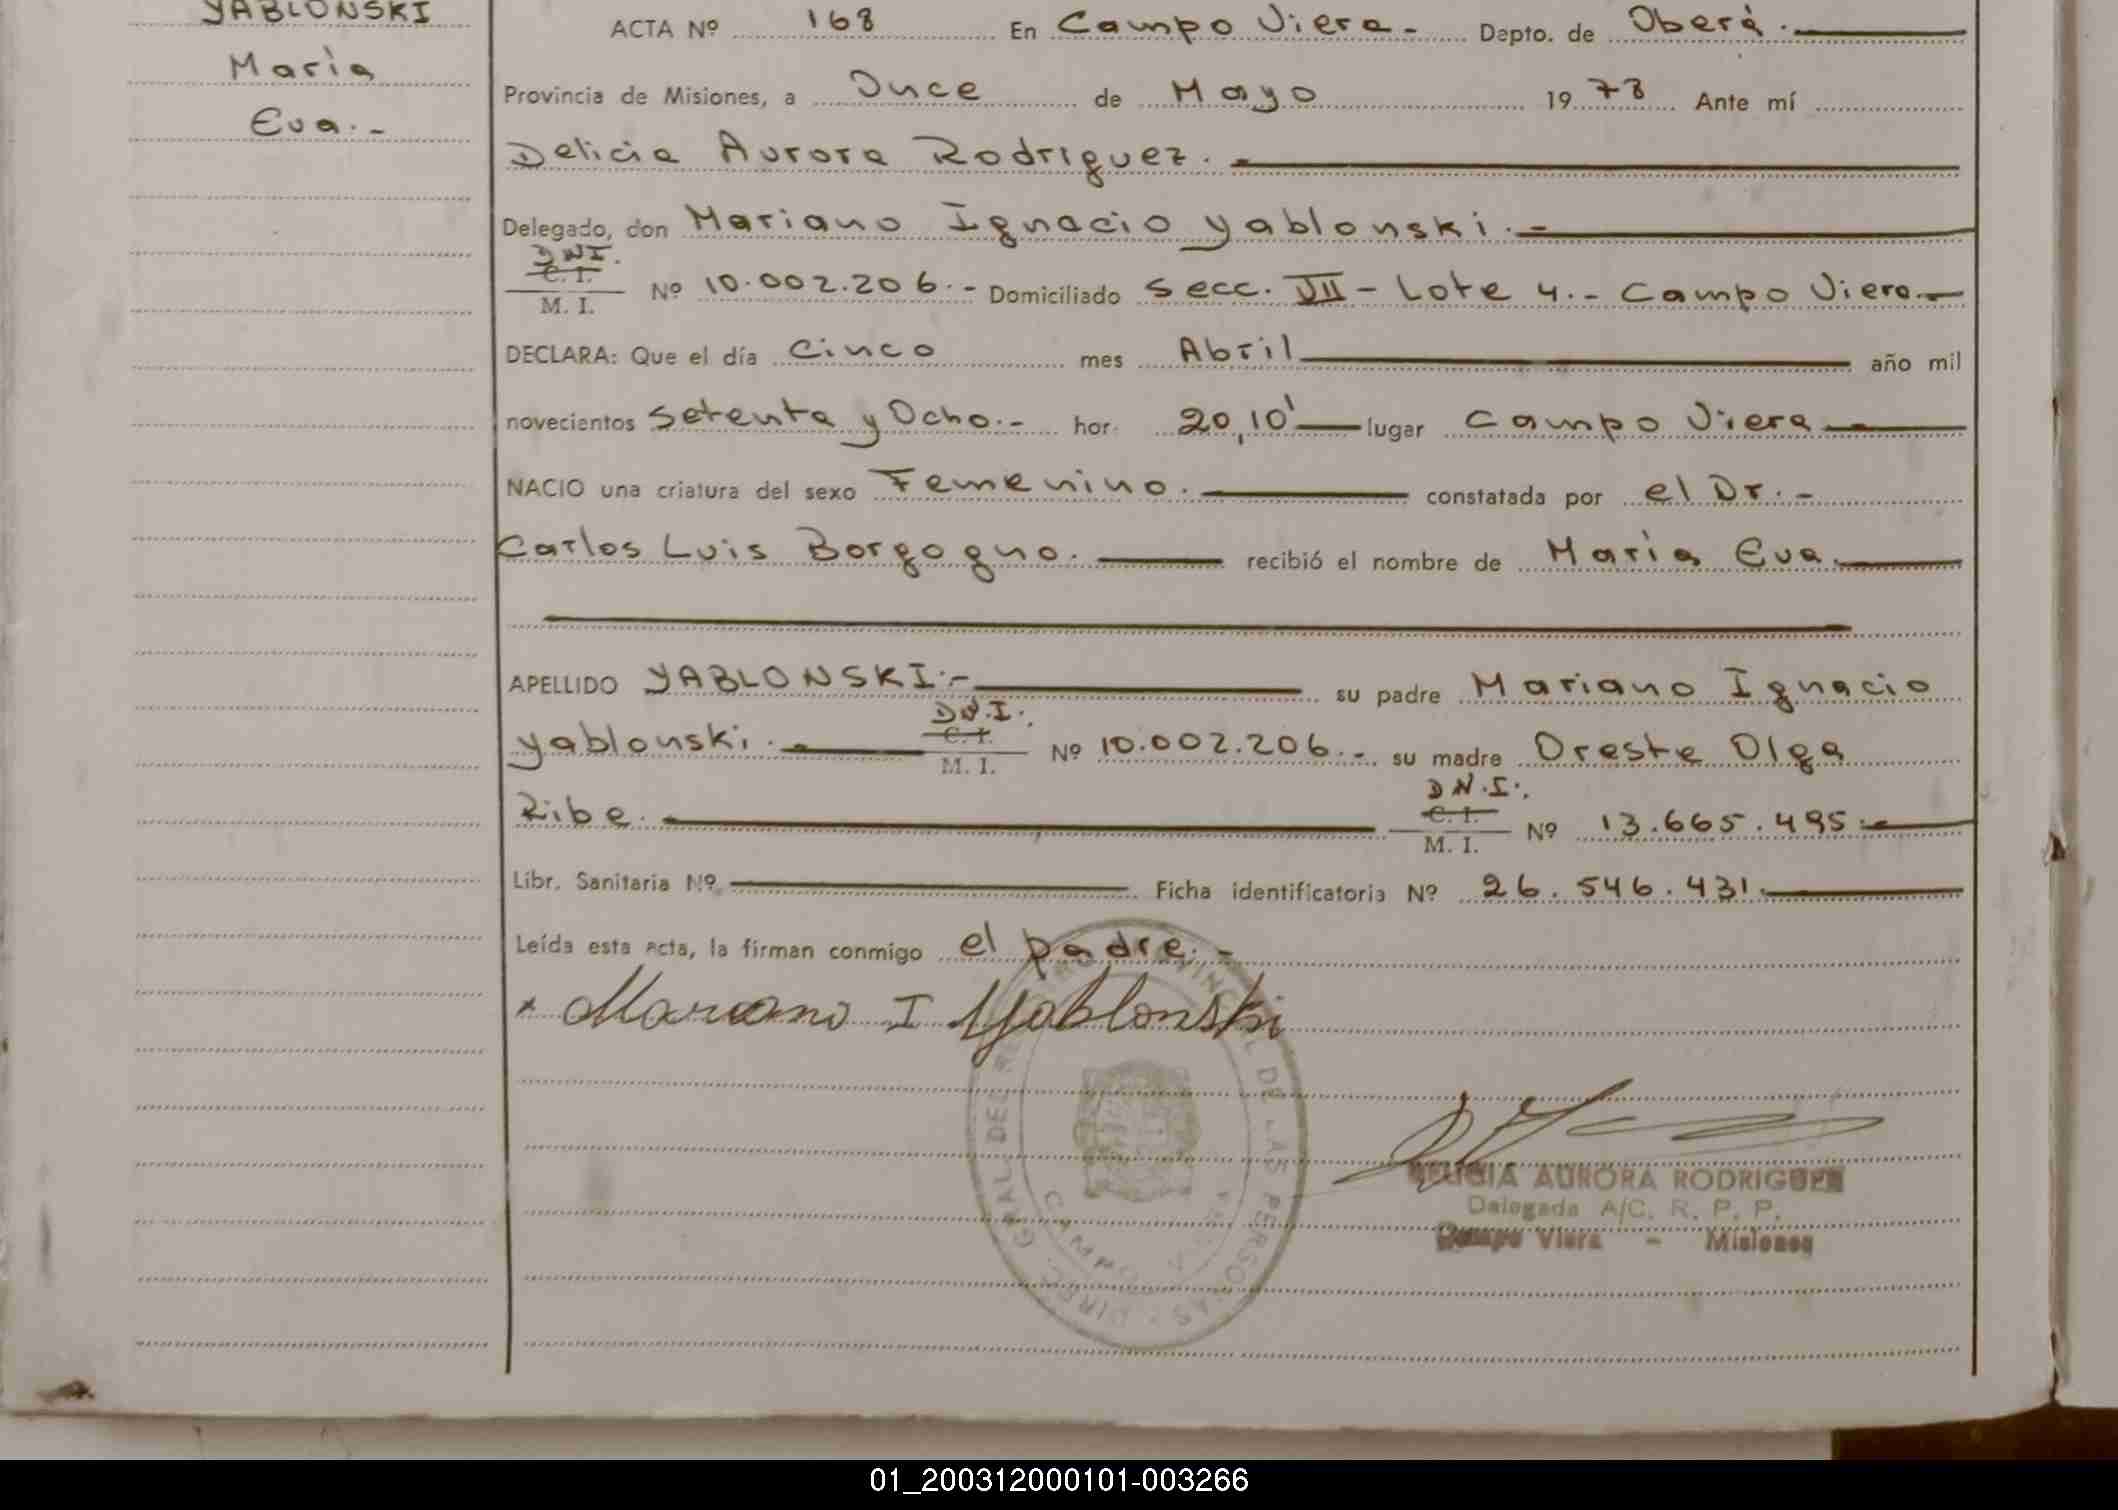 YABLONSKI
María
Eva.-
ACTA Nº 168 En Campo Viera.- Depto. de Oberá.
Provincia de Misiones, a Once de Mayo 1978 Ante mí
Delicia Aurora Rodriguez.
Delegado, don Mariano Ignacio Yablonski.-
D.N.I.
C. I.
M. I.
Nº 10.002.206.- Domiciliado Secc. VII - Lote 4.- Campo Viera.-
DECLARA: Que el día Cinco mes Abril año mil
novecientos Setenta y Ocho.- hor. 20,10' lugar Campo Viera
NACIO una criatura del sexo Femenino. constatada por el Dr.-
Carlos Luis Borgogno. recibió el nombre de María Eva.
APELLIDO YABLONSKI.- su padre Mariano Ignacio
D.N.I.
Yablonski.- C. I. Nº 10.002.206.- su madre Oreste Olga
M. I.
D.N.I.
Ribe. C. I. Nº 13.665.495.-
M. I.
Libr. Sanitaria Nº Ficha identificatoria Nº 26.546.431.
Leída esta acta, la firman conmigo el padre.-
Mariano I Yablonski
DIREC. GRAL DEL REGISTRO PROVINCIAL DE LAS PERSONAS
CAMPO VIERA
DELICIA AURORA RODRIGUEZ
Delegada A/C. R. P. P.
Campo Viera - Misiones
01_200312000101-003266